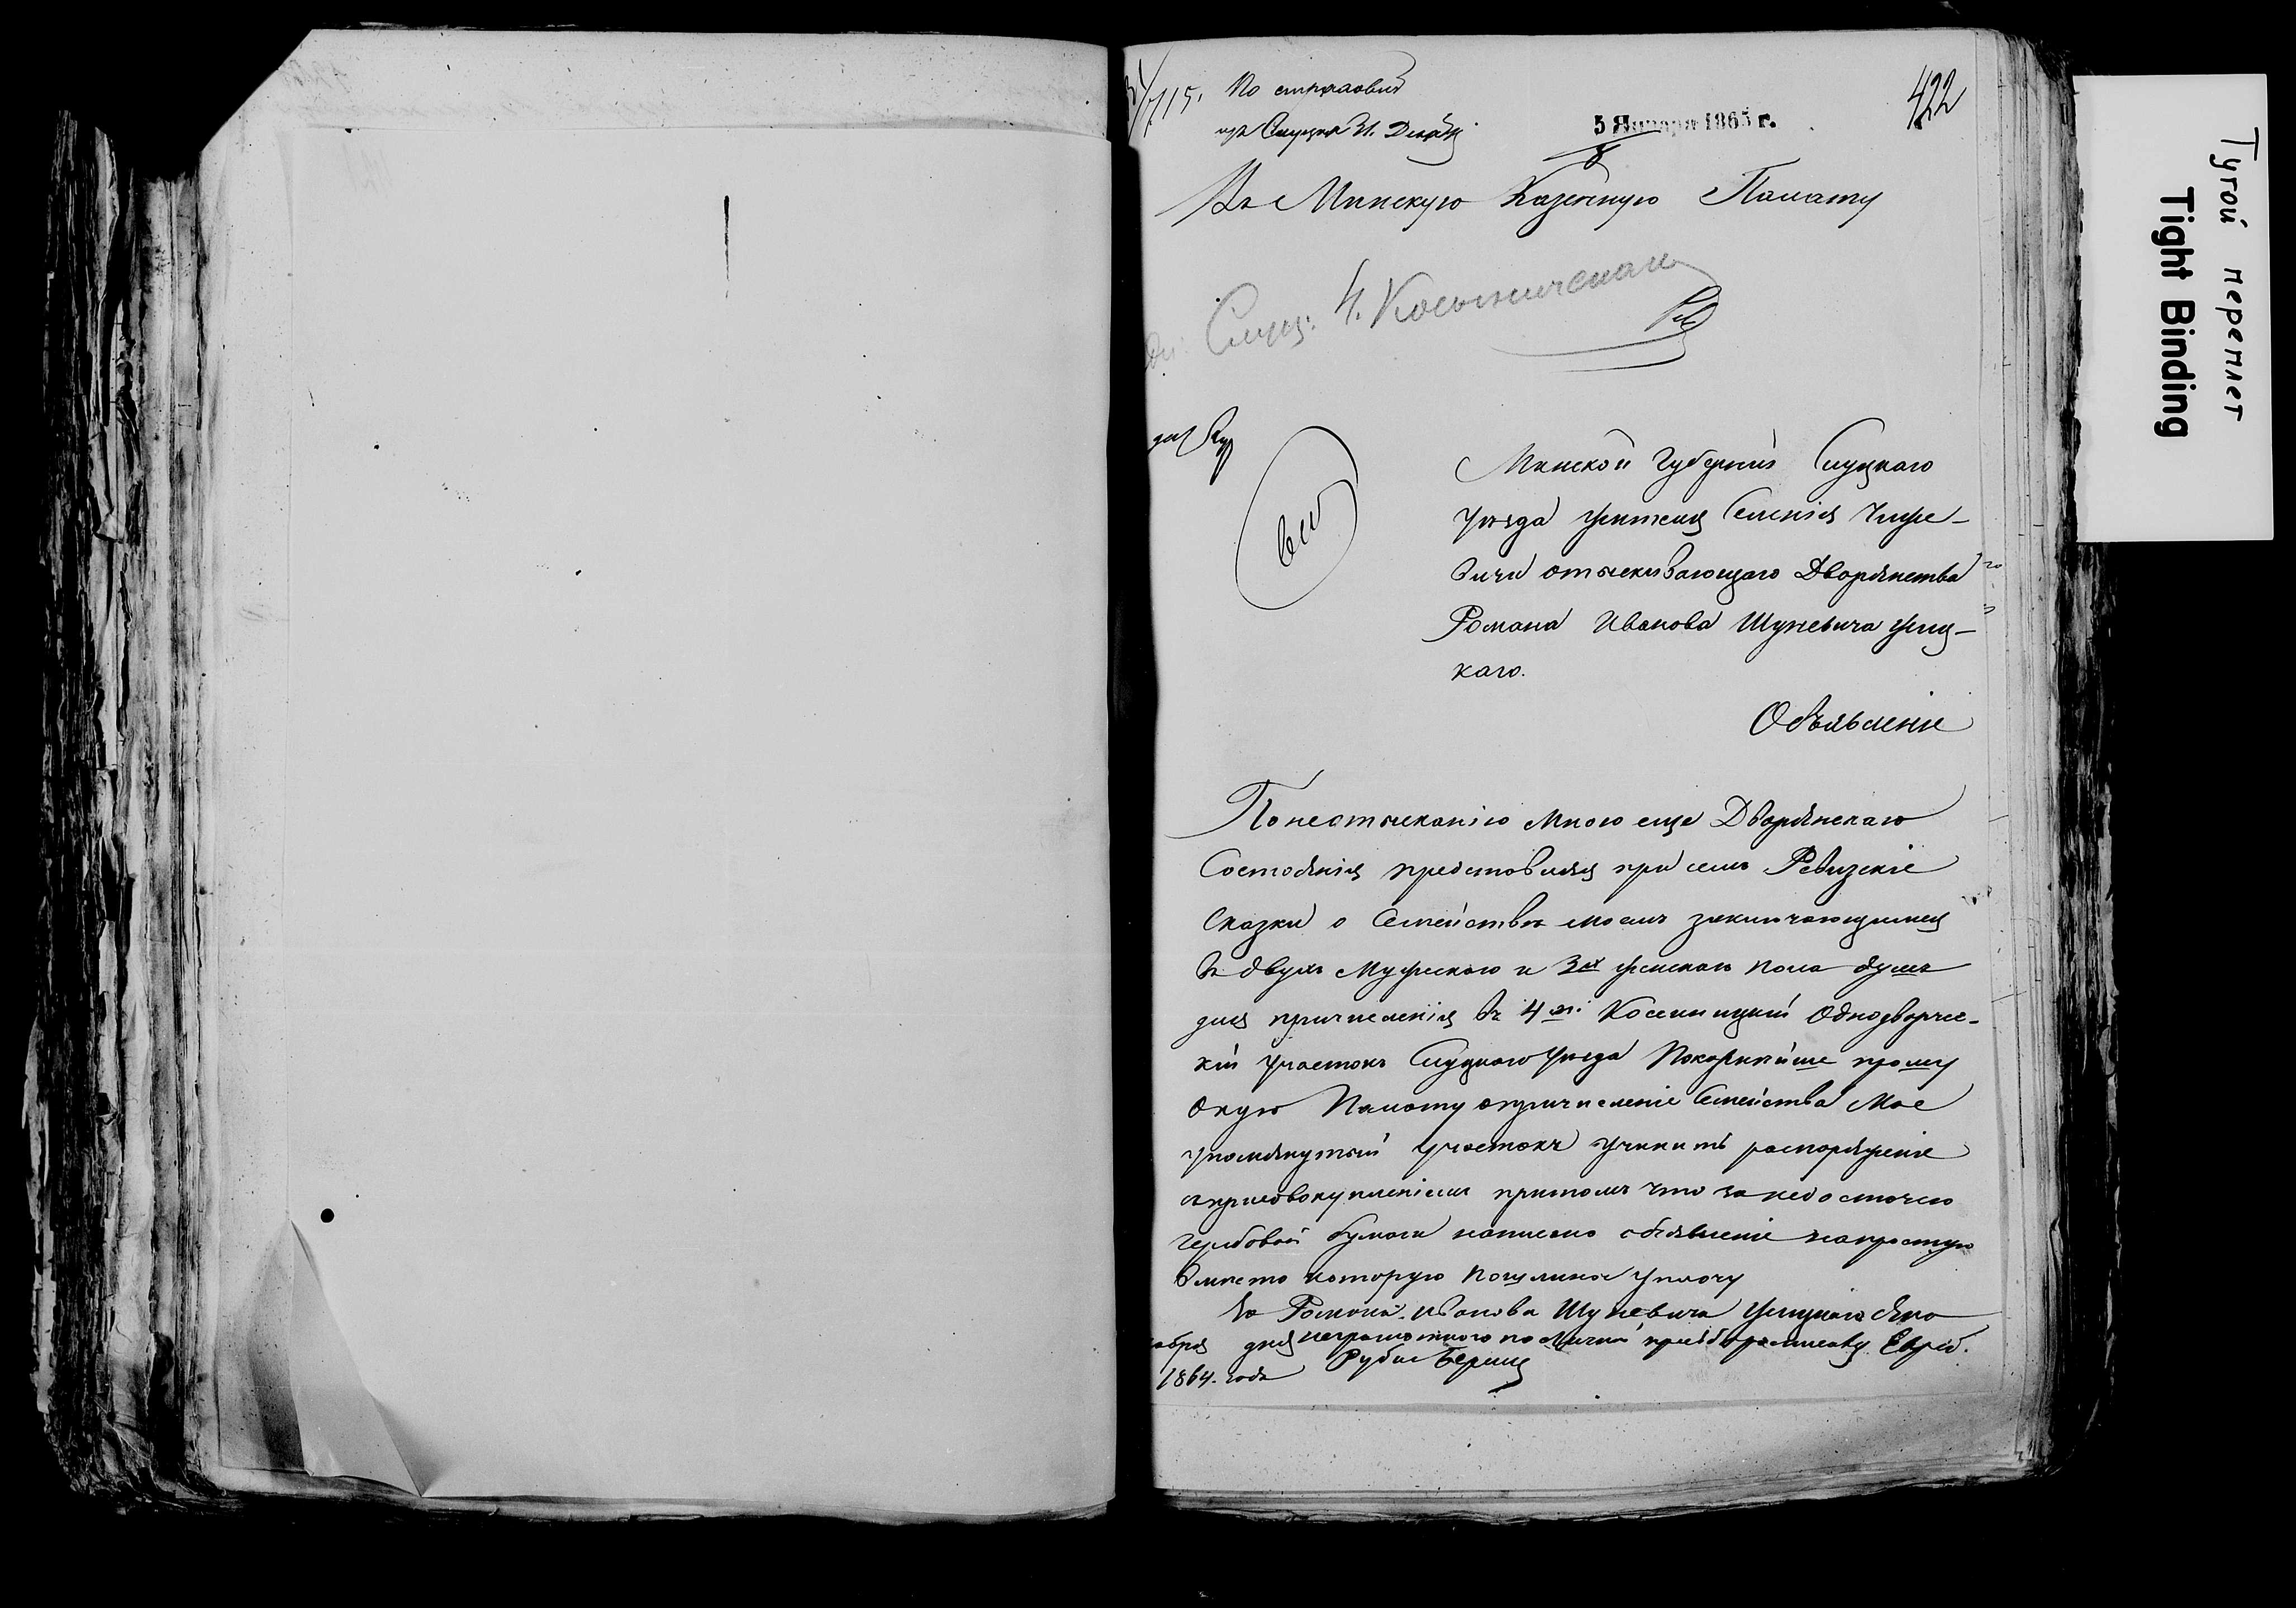 По страховой
изъ Слуцка 31. Декаб.
5 Января 1865 г.
422
8
Въ Минскую Казенную Палату
Слуц: 4. Косыничскаго
Минской Губерніи Слуцкаго
Уѣзда жителя Селенія Чире-
вичи отыскивающаго Дворянства
Романа Иванова Шуневича
каго.
Объявленіе
По неотысканію мною еще Дворянскаго
Состоянія представляя при семъ Ревизскіе
Сказки о Семействѣ моемъ заключающимся
въ двухъ Мужескаго и 3хъ женскаго пола душъ
для причисленія въ 4й Косыницкій Однодворчес-
кій участокъ Слуцкаго Уѣзда Покорнѣйше прошу
Оную Палату о причисленіе Семейства Мое
упомянутый участокъ учинить распоряженіе
съ присовокупленіемъ притомъ что за недостачею
гербовой бумаги написано объявленіе на простую
вмѣсто которую Пошлиное уплачу
За Романа Иванова Шуневича
неграмотнаго по личной прозьбѣ росписался Еврей
абря дня
1864. года
Тугой переплет
Tight Binding